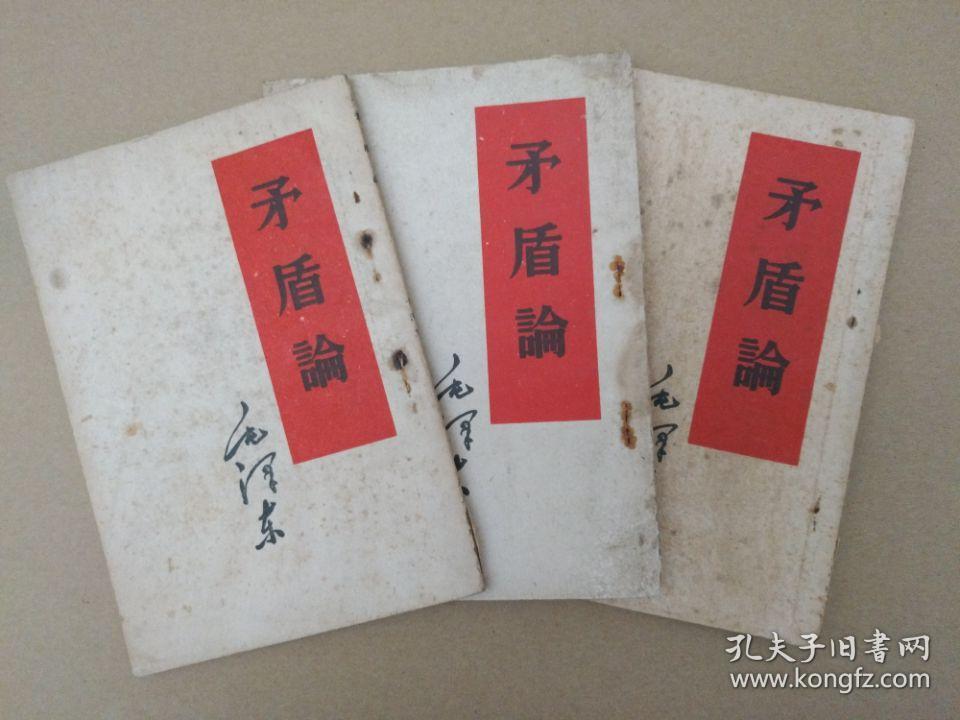 矛盾論
毛泽东
矛盾論
毛泽东
矛盾論
毛泽
孔夫子旧書网
www.kongfz.com